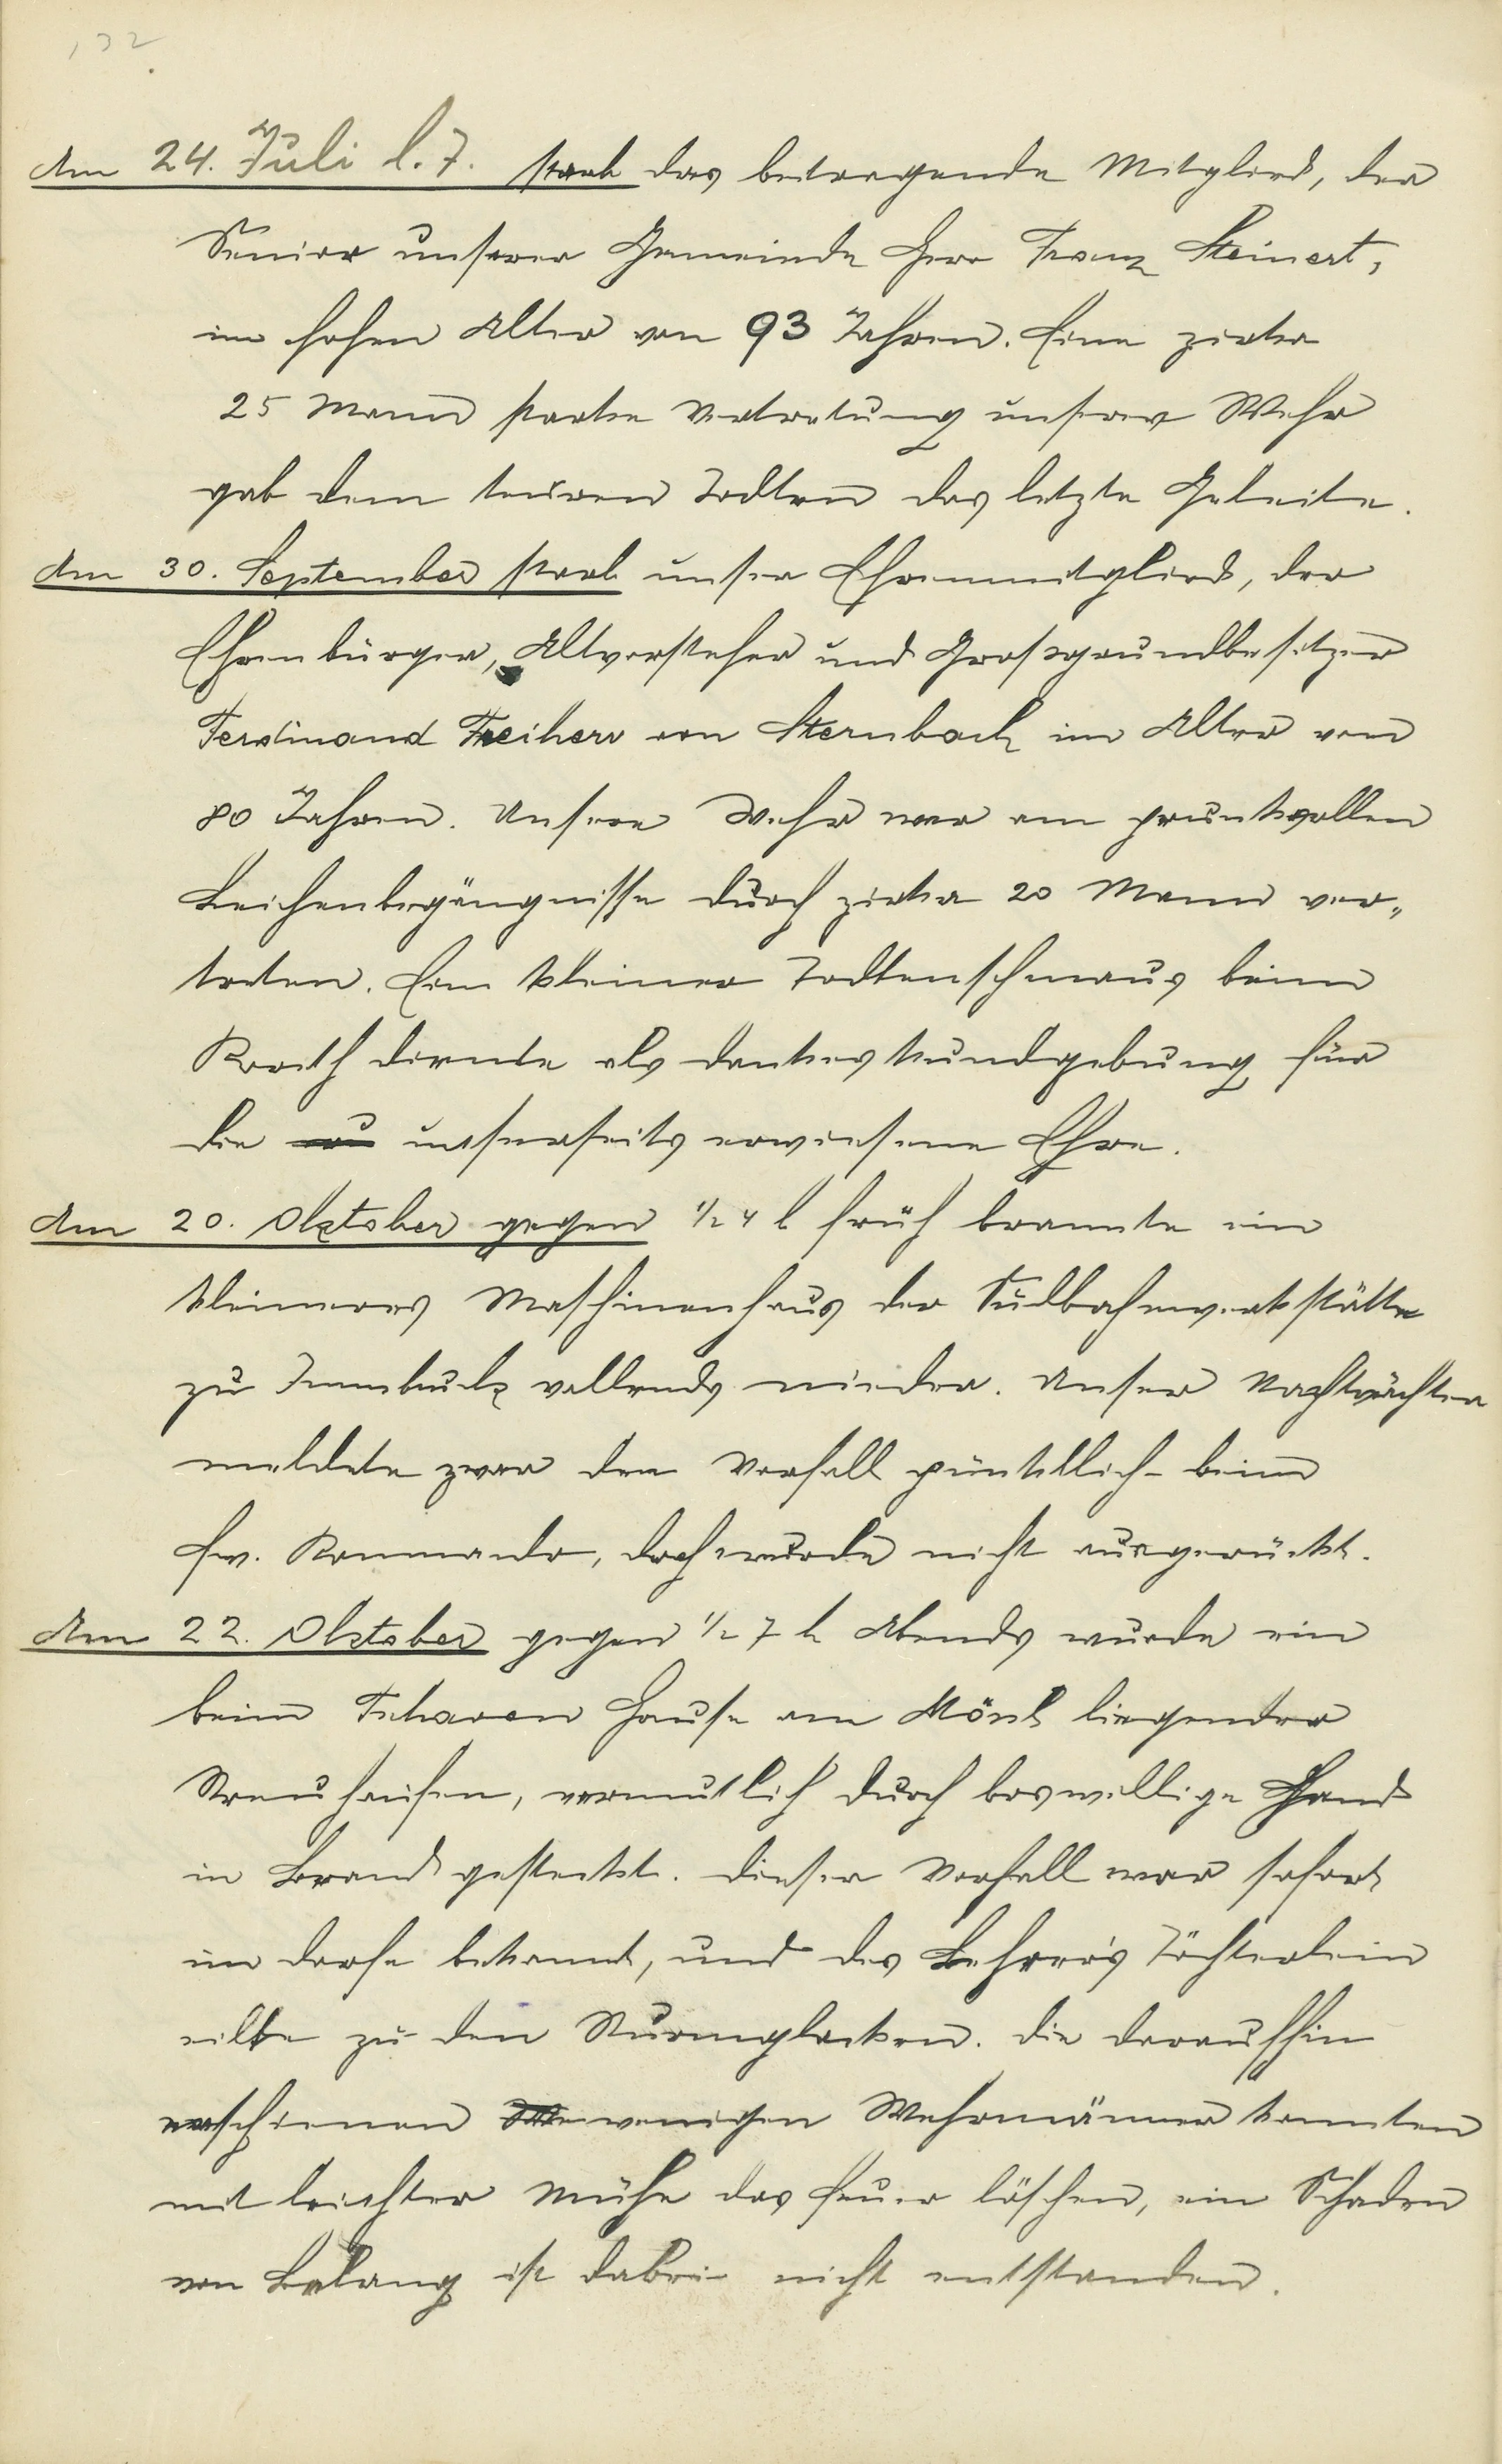 132
Am 24. Juli l. J. starb das beitragende Mitglied, der
Senior unserer Gemeinde Herr Franz Steinert,
im hohen Alter von 93 Jahren. Eine zirka
25 Mann starke Vertretung unserer Wehr
gab dem teuren Todten das letzte Geleite.
Am 30. September starb unser Ehrenmitglied, der
Ehrenbürger, Altvorsteher und Großgrundbesitzer
Ferdinand Freiherr von Sternbach im Alter von
80 Jahren. Unsere Wehr war am prunkvollen
Leichenbegängnisse durch zirka 20 Mann ver-
treten. Ein kleiner Todtenschmaus beim
diente als Dankeskundgebung für
die unserseits erwiesene Ehre.
Am 20. Oktober gegen ½ 4 h früh brannte ein
kleineres Maschinenhaus der Südbahnwerkstätte
zu Innsbruck vollends nieder. Unser Nachtwächter
meldete zwar den Vorfall pünktlich beim
Fw. Kommando, doch wurde nicht ausgerückt.
Am 22. Oktober gegen ½ 7 h Abends wurde ein
beim Hause am liegender
Streuhaufen, vermutlich durch böswillige Hand
in Brand gesteckt. Dieser Vorfall war sofort
im Dorfe bekannt, und des Lehrer's Töchterlein
eilte zu den Sturmglocken. Die daraufhin
erschienen wenigen Wehrmänner konnten
mit leichter Mühe das Feuer löschen, ein Schaden
von Belang ist dabei nicht entstanden.